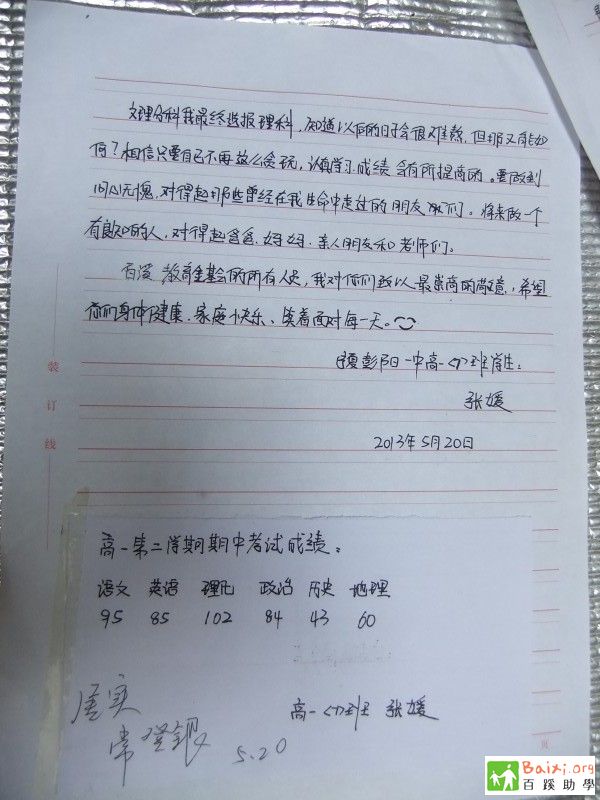 文理分科我最终选报理科,知道以后的日子会很难熬,但那又能如
何?相信只要自己不再这么贪玩,认真学习成绩会有所提高的。要做到
问心无愧,对得起那些曾经在我生命中走过的朋友们。将来做一个
有良知的人,对得起爸爸、妈妈、亲人朋友和老师们。
百溪教育基金会的所有人员,我对你们致以最崇高的敬意,希望
你们身体健康、家庭快乐、笑着面对每一天。
宁夏彭阳一中高一<7>班学生:
张媛
2013年5月20日
装
订
线
高一第二学期期中考试成绩:
语文 英语 理化 政治 历史 地理
95 85 102 84 43 60
高一<7>班 张媛
属实
常登银
5.20
页
Baixi.org
百蹊助學